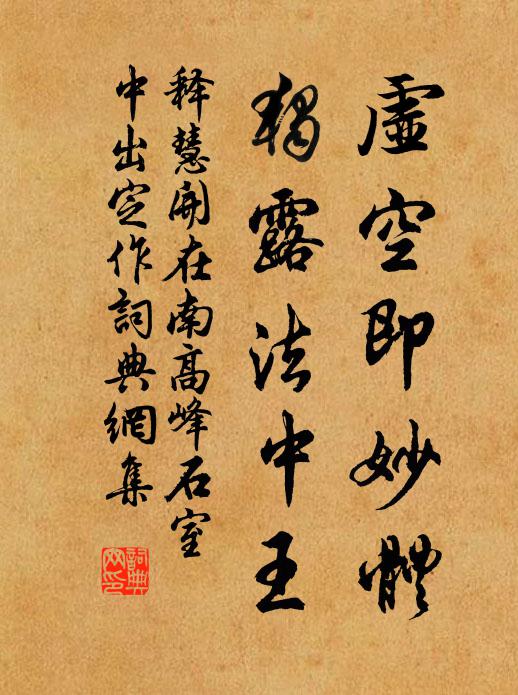 虛空即妙體
獨露法中王
释慧開在南高峰石室
中出定作詞典網集
詞典網印